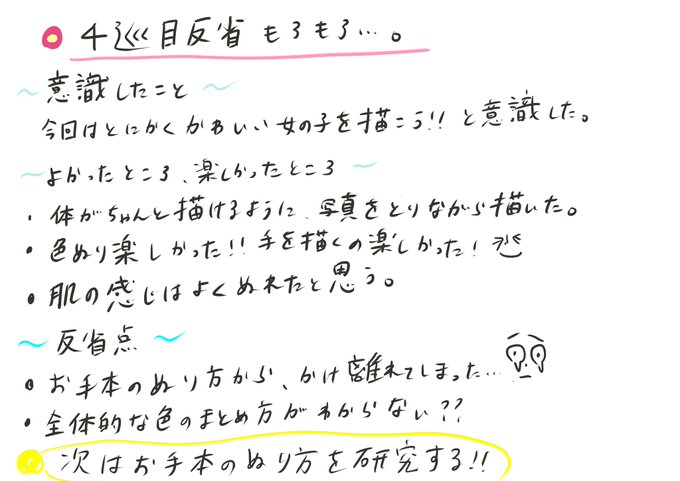 4巡目反省 もろもろ…。
～意識したこと～
今回はとにかくかわいい女の子を描こう!! と意識した。
～よかったところ、楽しかったところ～
・体がちゃんと描けるように、写真をとりながら描いた。
・色ぬり楽しかった!! 手を描くの楽しかった!
・肌の感じはよくぬれたと思う。
～反省点～
・お手本のぬり方から、かけ離れてしまった…
・全体的な色のまとめ方がわからない??
次はお手本のぬり方を研究する!!